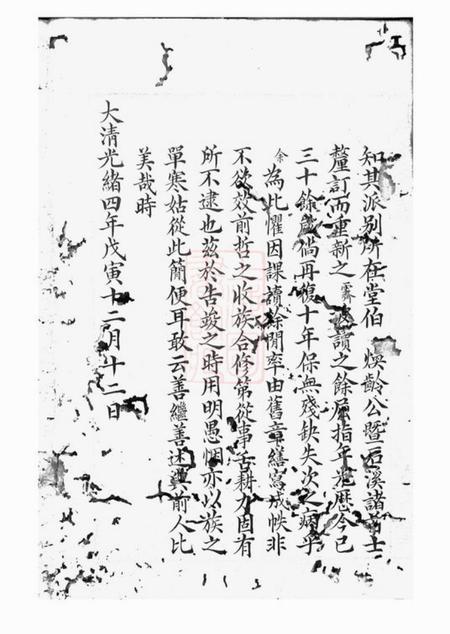 知其派別所在堂伯 煥齡公暨石溪諸前士
釐訂而重新之霽披讀之餘屈指年光歷今已
三十餘歲倘再復十年保無殘缺失次之病乎
余為此懼因課讀餘閒率由舊章繕寫成帙非
不欲效前哲之收族合修第從事舌耕力固有
所不逮也茲於告竣之時用明愚悃亦以族之
單寒姑從此簡便耳敢云善繼善述與前人比
美哉時
大清光緒四年戊寅十二月十二日